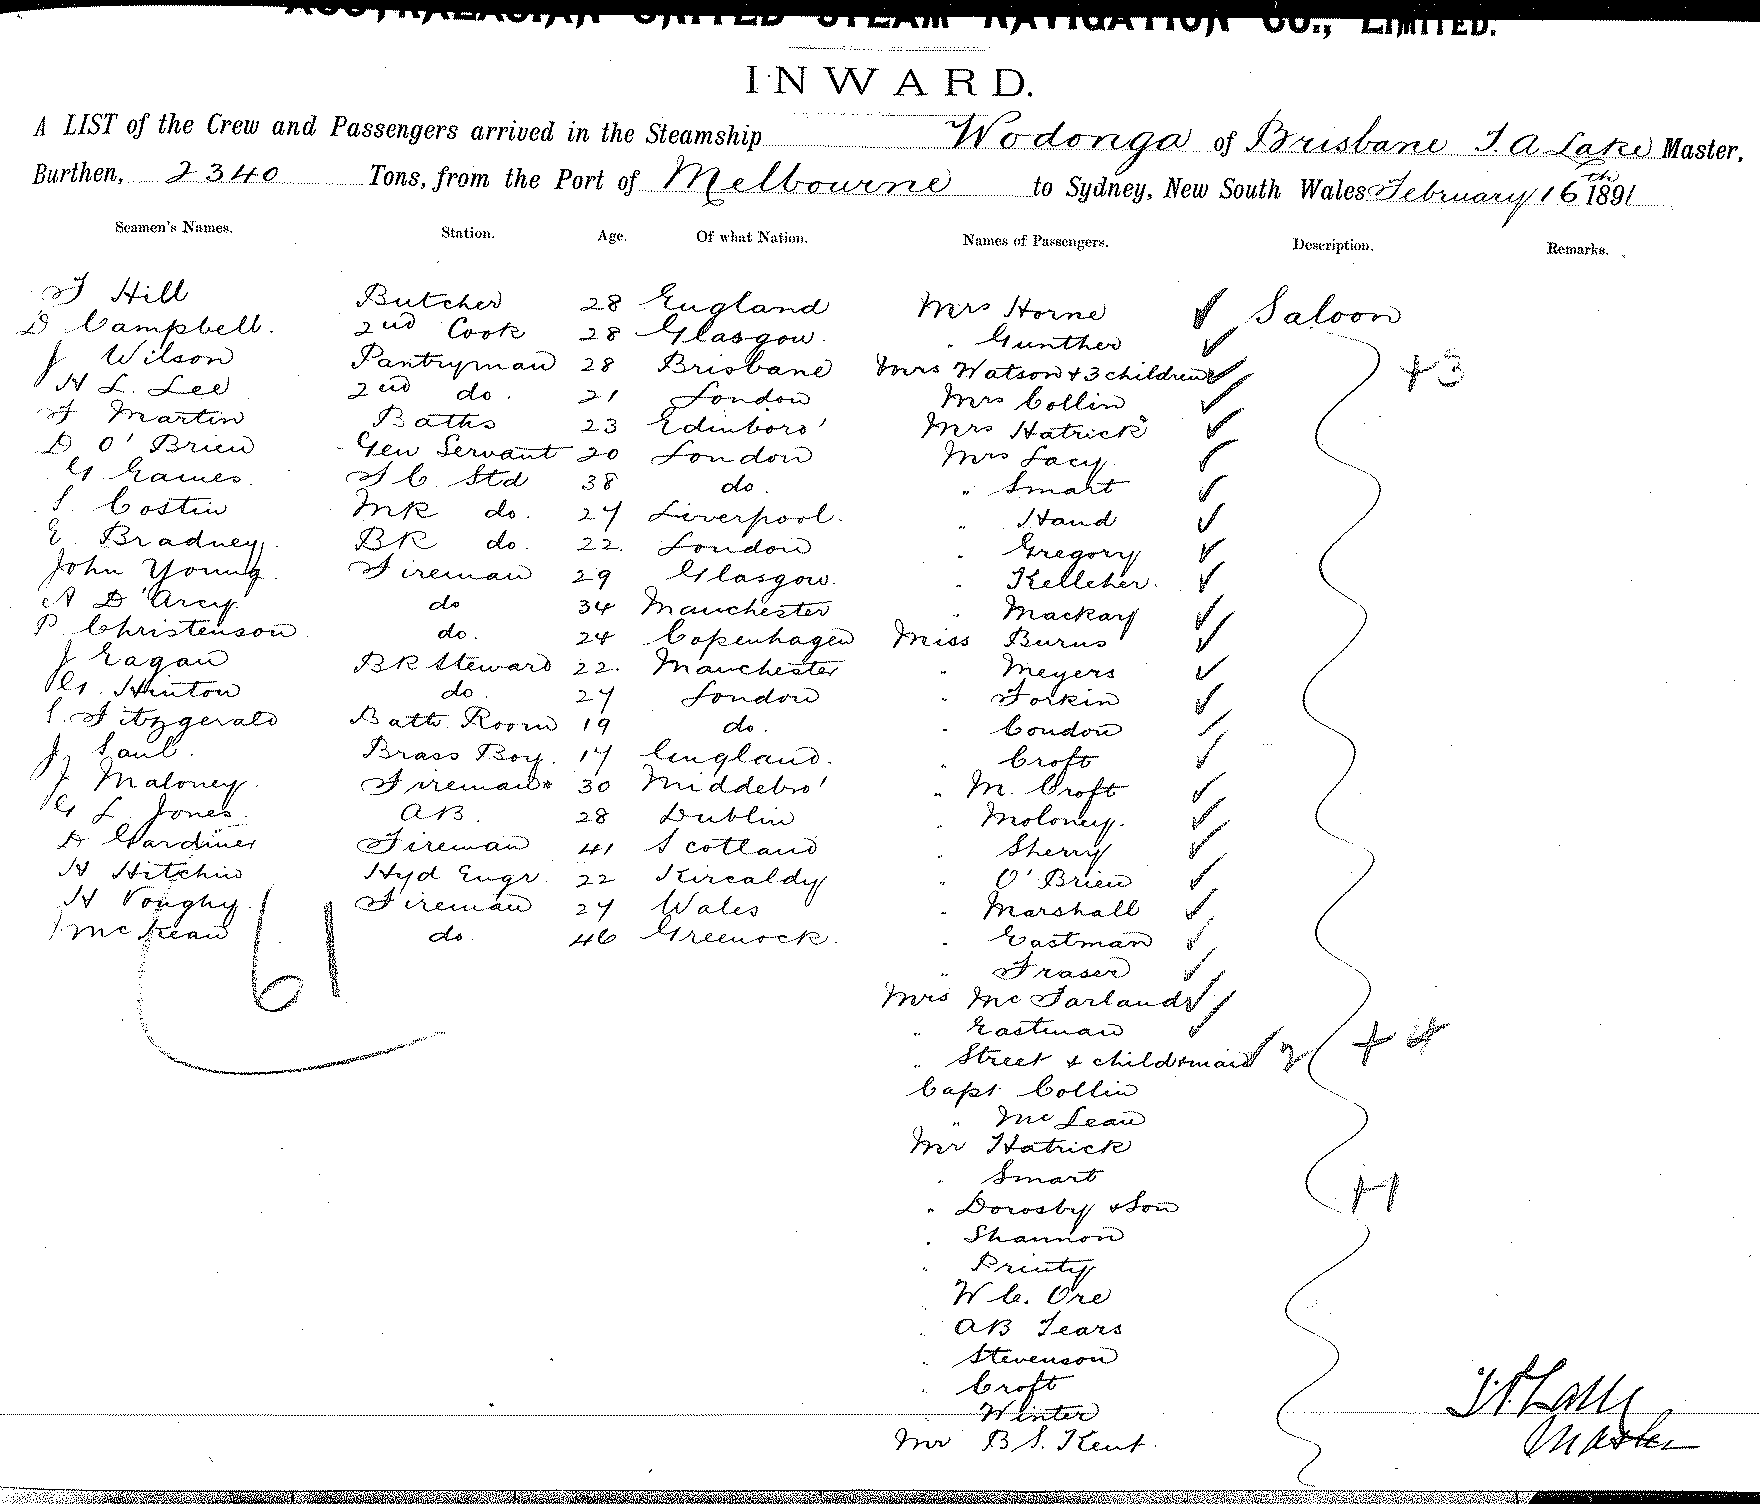 AUSTRALASIAN UNITED STEAM NAVIGATION CO., LIMITED.
INWARD.
A LIST of the Crew and Passengers arrived in the Steamship Wodonga of Brisbane T A Lake Master,
Burthen, 2340 Tons, from the Port of Melbourne to Sydney, New South Wales February 16th 1891
Seamen's Names. Station. Age. Of what Nation. Names of Passengers. Description. Remarks.
F Hill Butcher 28 England Mrs Horne Saloon
D Campbell. 2nd Cook 28 Glasgow. " Gunther
J Wilson Pantryman 28 Brisbane Mrs Watson + 3 children +3
H L. Lee 2nd do. 21 London Mrs Collin
F Martin Baths 23 Edinboro' Mrs Hatrick
D O'Brien Gen Servant 20 London Mrs Lacy
G Eames. F C. Std 38 do. " Smart
S. Costin MR do. 27 Liverpool. " Hand
E. Bradney. BR do. 22. London " Gregory
John Young. Fireman 29 Glasgow. " Kelleher.
A D'Arcy. do 34 Manchester " Mackay
P Christenson do. 24 Copenhagen Miss Burns
J Eagan BR Steward 22. Manchester " Meyers
G. Hinton do. 27 London " Forkin
S. Fitzgerald Bath Room 19 do. " Condon
J, Saul. Brass Boy. 17 England. " Croft
J Maloney. Fireman 30 Middebro' " M. Croft
G L Jones. AB. 28 Dublin " Moloney.
D Gardiner Fireman 41 Scotland " Sherry
H Hitchin Hyd Engr. 22 Kircaldy " O'Brien
H Voughy. Fireman 27 Wales " Marshall
J McKean do. 46 Greenock. " Eastman
61
" Fraser
Mrs McFarland
" Eastman
" Street + child + maid 2 + 4
Capt Collin
" McLean
Mr Hatrick
" Smart +1
" Dorosby + Son
" Shannon
" Printy
" W C. Ore
" AB Tears
" Stevenson
" Croft
" Winter
Mr B S. Kent.
T A Lake
Master